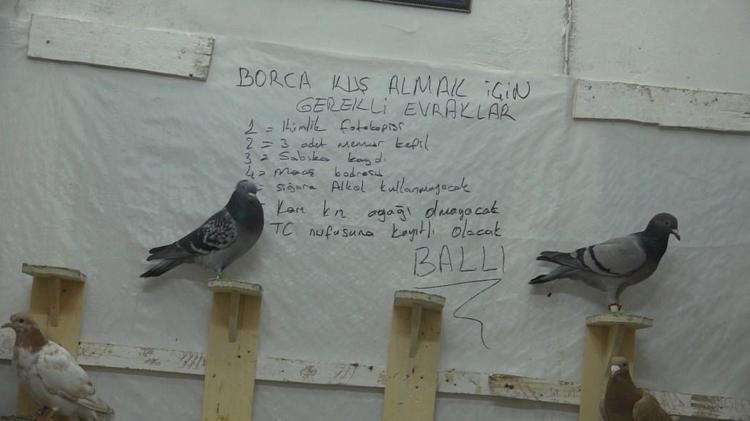 BORCA KUŞ ALMAK İÇİN
GEREKLİ EVRAKLAR
1 = Kimlik fotokopisi
2 = 3 adet memur kefil
3 = Sabıka kaydı
4 = Maaş bodrosu
= sigara Alkol kullanmayacak
Karı kız aşağı olmayacak
TC nufusuna kayıtlı olacak
BALLI